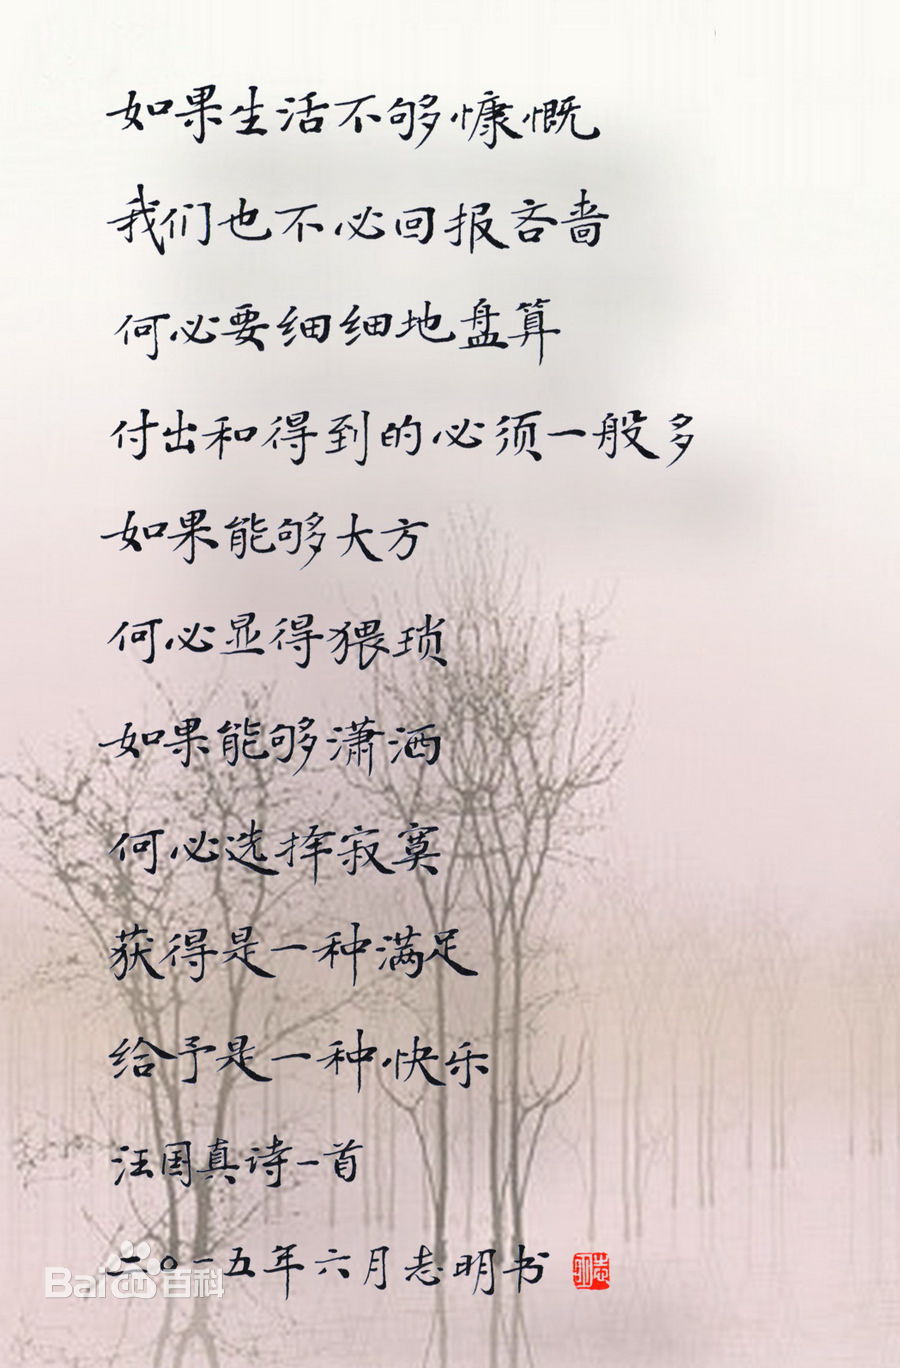 如果生活不够慷慨
我们也不必回报吝啬
何必要细细地盘算
付出和得到的必须一般多
如果能够大方
何必显得猥琐
如果能够潇洒
何必选择寂寞
获得是一种满足
给予是一种快乐
汪国真诗一首
二〇一五年六月志明书
志明
Baidu百科